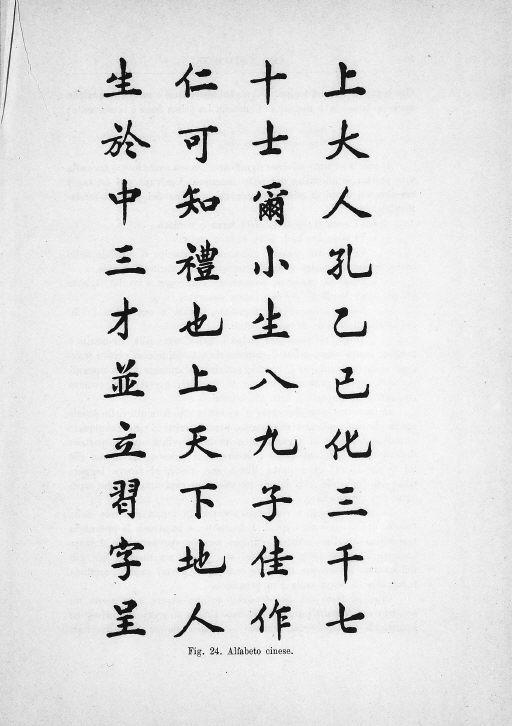 上大人孔乙己化三千七
十士爾小生八九子佳作
仁可知禮也上天下地人
生於中三才並立習字呈
Fig. 24. Alfabeto cinese.